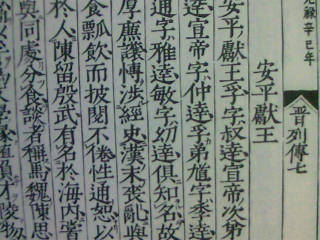 元祿辛巳年
晉列傳七
安平獻王
安平獻王孚字叔達宣帝次第
達宣帝字仲達孚弟馗字季達
通字雅達敏字幼達俱知名故
厚廉讓博涉經史漢末喪亂與
食瓢飲而披閱不倦性通恕以
於人陳留殷武有名於海內嘗
與同處分食談者稱焉魏陳思
文學掾植負才陵物